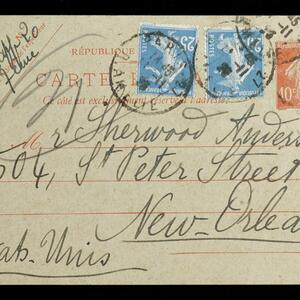 RÉPUBLIQUE
CARTE-L
Ce côté est exclusivement réservé à l'adresse
25 25
POSTES POSTES
10
PARIS
Mr Sherwood Anders
504, St Peter Street
New-Orlea
tats-Unis